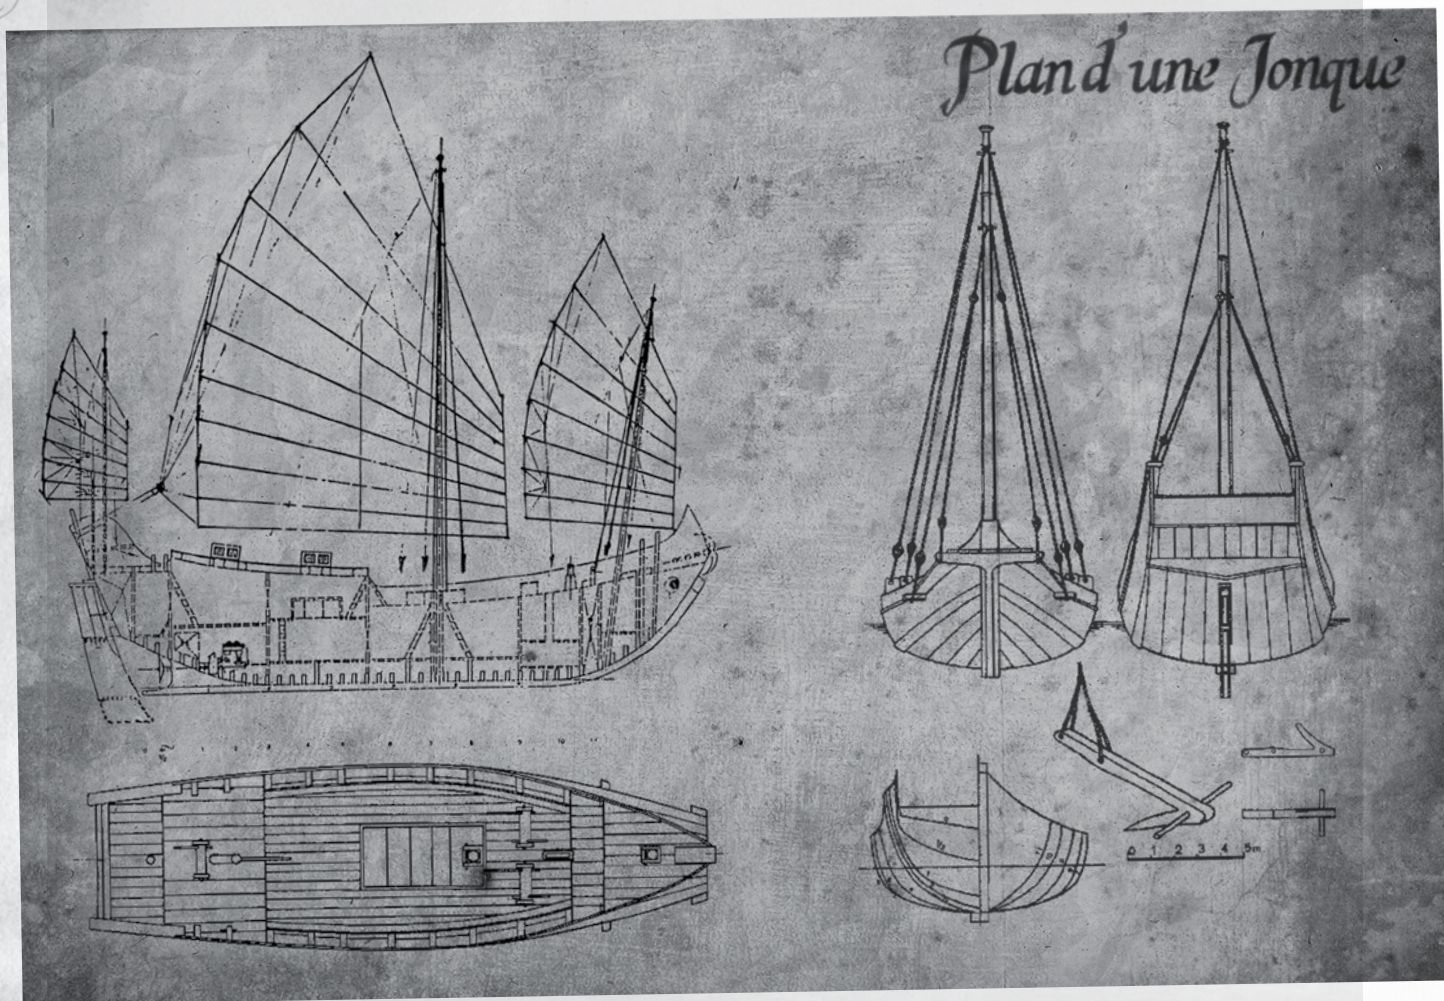 Plan d'une Jonque
0 1 2 3 4 5m